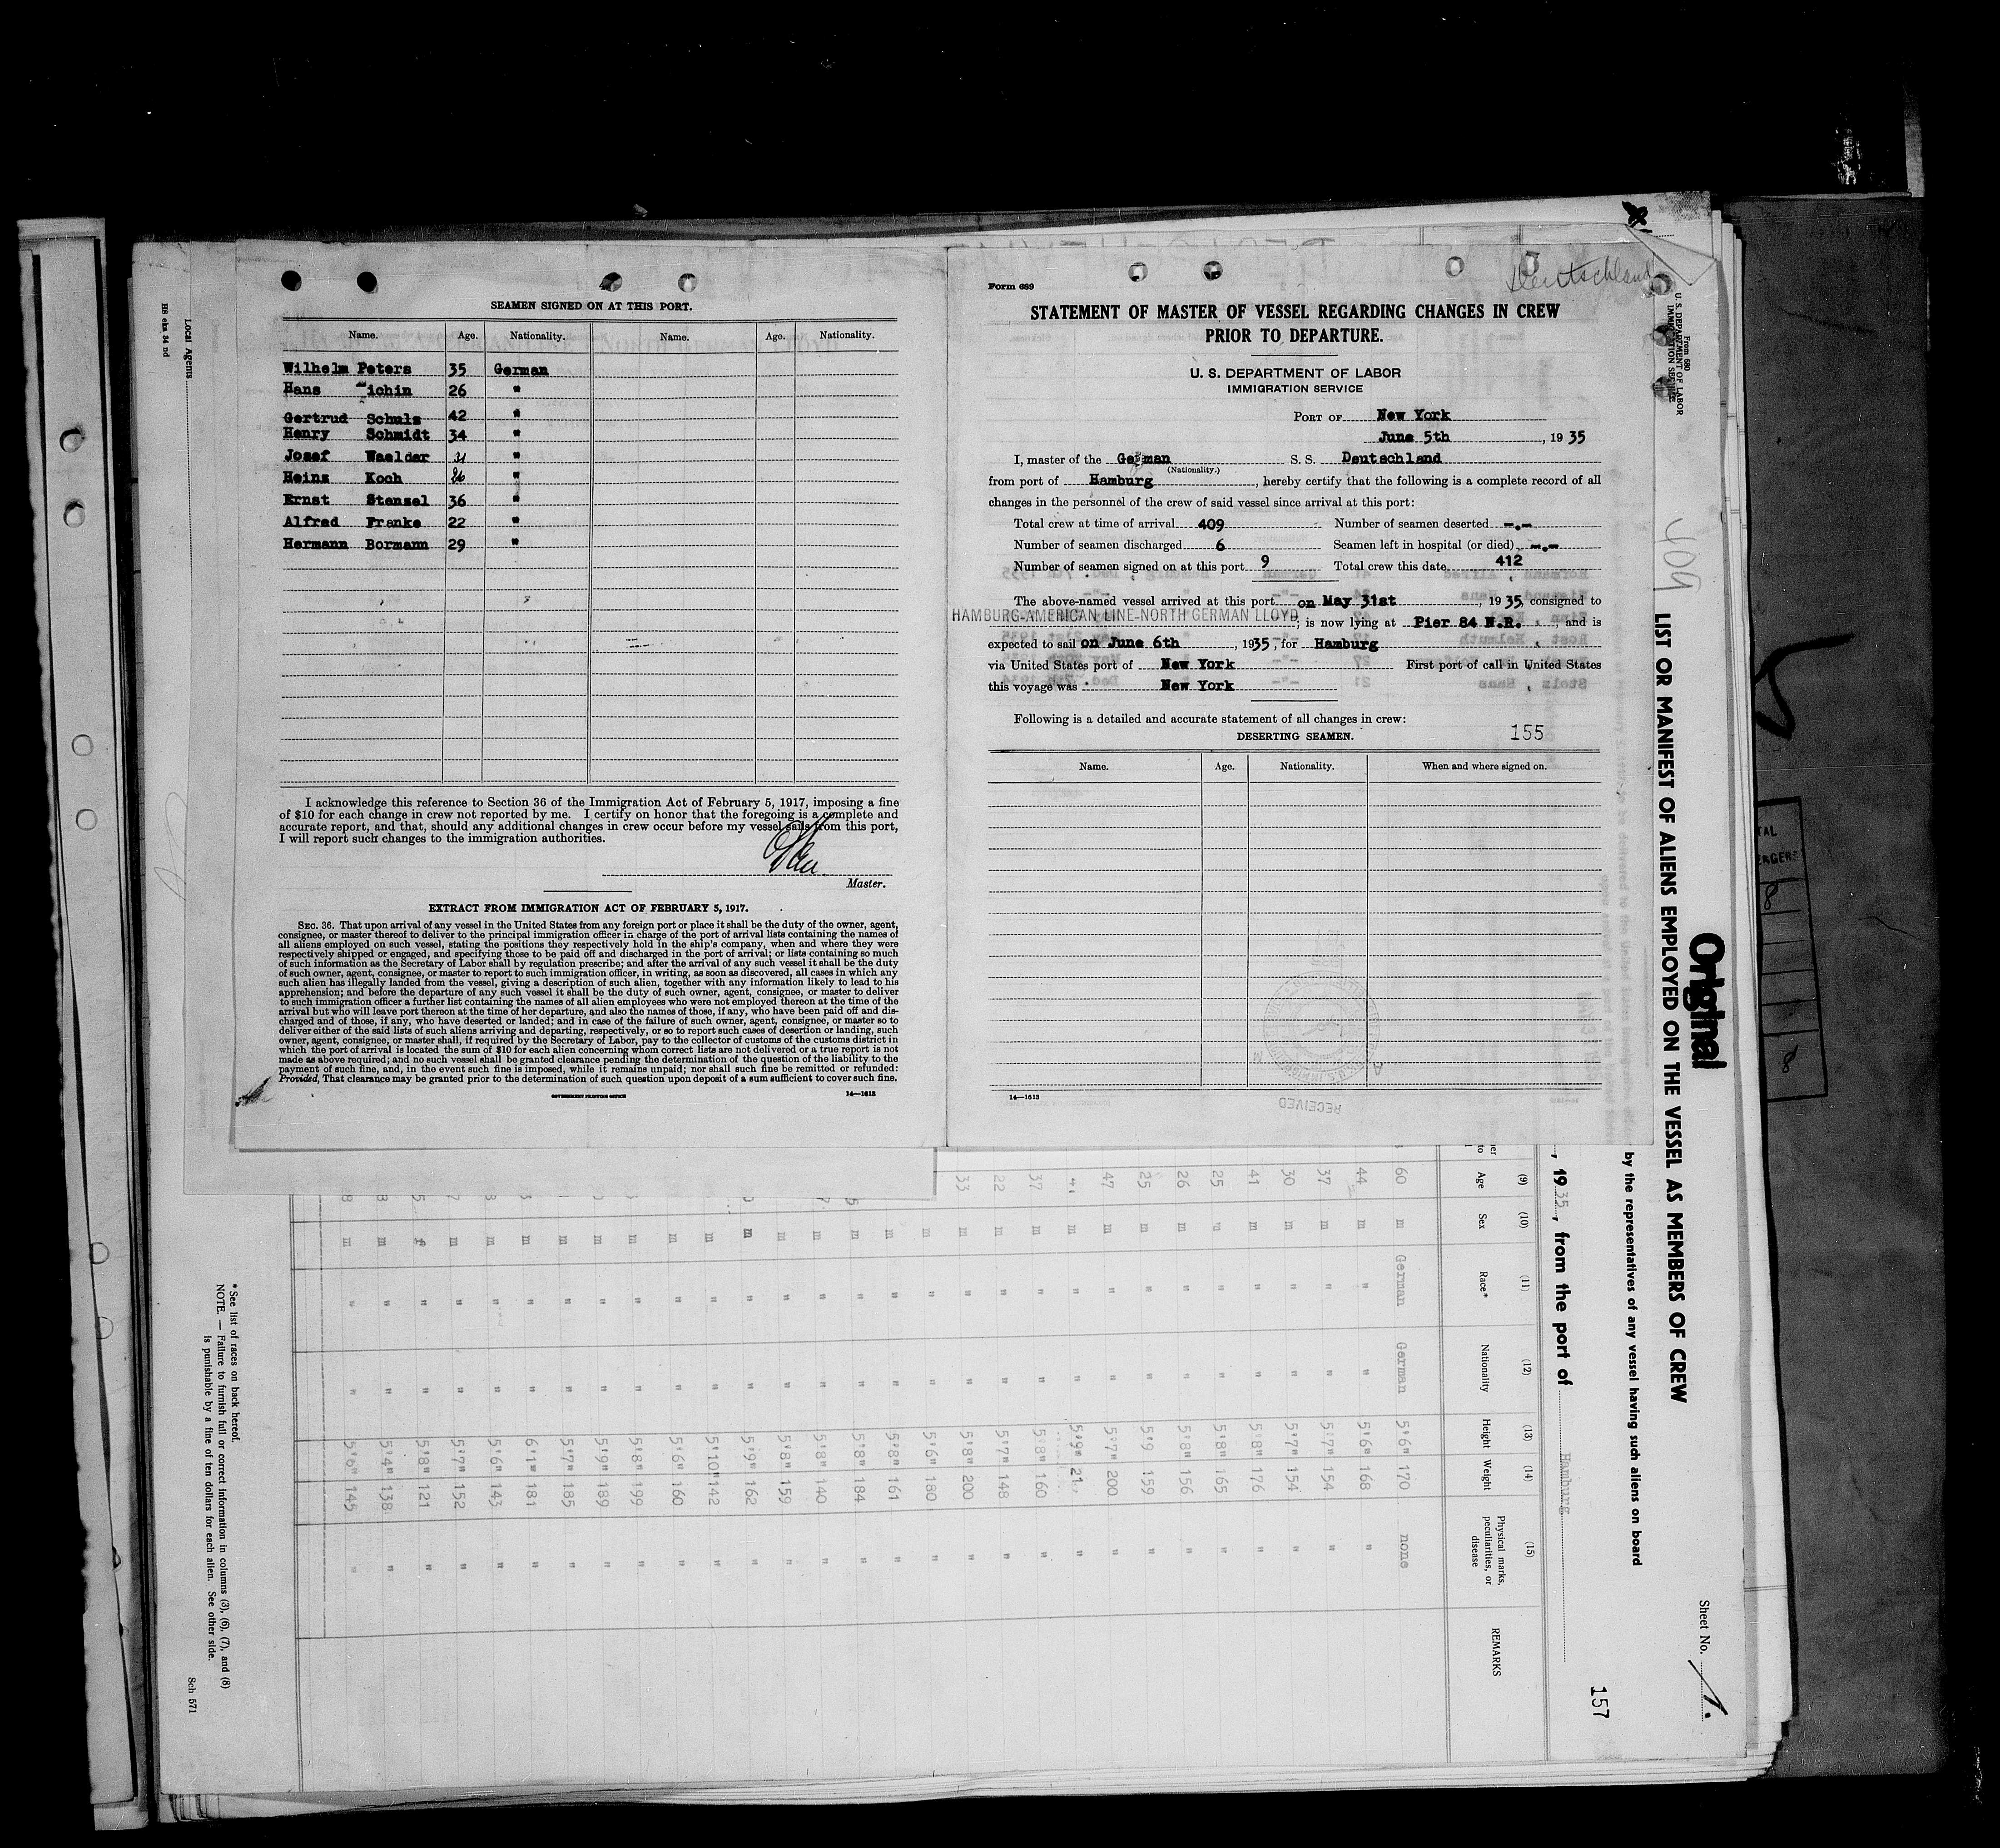 SEAMEN SIGNED ON AT THIS PORT.
Name. Age. Nationality. Name. Age. Nationality.
Wilhelm Peters 35 German
Hans ichin 26 "
Gertrud Schulz 42 "
Henry Schmidt 34 "
Josef Waelder "
Heinz Koch "
Ernst Stenzel 36 "
Alfred Franke 22 "
Hermann Bormann 29 "
I acknowledge this reference to Section 36 of the Immigration Act of February 5, 1917, imposing a fine
of $10 for each change in crew not reported by me. I certify on honor that the foregoing is a complete and
accurate report, and that, should any additional changes in crew occur before my vessel sails from this port,
I will report such changes to the immigration authorities.
Master.
EXTRACT FROM IMMIGRATION ACT OF FEBRUARY 5, 1917.
SEC. 36. That upon arrival of any vessel in the United States from any foreign port or place it shall be the duty of the owner, agent,
consignee, or master thereof to deliver to the principal immigration officer in charge of the port of arrival lists containing the names of
all aliens employed on such vessel, stating the positions they respectively hold in the ship's company, when and where they were
respectively shipped or engaged, and specifying those to be paid off and discharged in the port of arrival; or lists containing so much
of such information as the Secretary of Labor shall by regulation prescribe; and after the arrival of any such vessel it shall be the duty
of such owner, agent, consignee, or master to report to such immigration officer, in writing, as soon as discovered, all cases in which any
such alien has illegally landed from the vessel, giving a description of such alien, together with any information likely to lead to his
apprehension; and before the departure of any such vessel it shall be the duty of such owner, agent, consignee, or master to deliver
to such immigration officer a further list containing the names of all alien employees who were not employed thereon at the time of the
arrival but who will leave port thereon at the time of her departure, and also the names of those, if any, who have been paid off and dis-
charged and of those, if any, who have deserted or landed; and in case of the failure of such owner, agent, consignee, or master so to
deliver either of the said lists of such aliens arriving and departing, respectively, or so to report such cases of desertion or landing, such
owner, agent, consignee, or master shall, if required by the Secretary of Labor, pay to the collector of customs of the customs district in
which the port of arrival is located the sum of $10 for each alien concerning whom correct lists are not delivered or a true report is not
made as above required; and no such vessel shall be granted clearance pending the determination of the question of the liability to the
payment of such fine, and, in the event such fine is imposed, while it remains unpaid; nor shall such fine be remitted or refunded:
Provided, That clearance may be granted prior to the determination of such question upon deposit of a sum sufficient to cover such fine.
GOVERNMENT PRINTING OFFICE 14—1613
Deutschland
Form 689
STATEMENT OF MASTER OF VESSEL REGARDING CHANGES IN CREW
PRIOR TO DEPARTURE.
U. S. DEPARTMENT OF LABOR
IMMIGRATION SERVICE
PORT OF New York
June 5th, 1935
I, master of the German S. S. Deutschland
(Nationality.)
from port of Hamburg, hereby certify that the following is a complete record of all
changes in the personnel of the crew of said vessel since arrival at this port:
Total crew at time of arrival 409 Number of seamen deserted -.-
Number of seamen discharged 6 Seamen left in hospital (or died) -.-
Number of seamen signed on at this port 9 Total crew this date 412
The above-named vessel arrived at this port on May 31st, 1935, consigned to
HAMBURG-AMERICAN LINE-NORTH GERMAN LLOYD; is now lying at Pier 84 N.R., and is
expected to sail on June 6th, 1935, for Hamburg
via United States port of New York First port of call in United States
this voyage was New York
Following is a detailed and accurate statement of all changes in crew:
DESERTING SEAMEN. 155
Name. Age. Nationality. When and where signed on.
14—1613
RECEIVED
Form 680
U. S. DEPARTMENT OF LABOR
IMMIGRATION SERVICE
409
Original
LIST OR MANIFEST OF ALIENS EMPLOYED ON THE VESSEL AS MEMBERS OF CREW
Sheet No. 1.
by the representatives of any vessel having such aliens on board
157
, 1935, from the port of Hamburg
(9) (10) (11) (12) (13) (14) (15)
Age Sex Race* Nationality Height Weight Physical marks, peculiarities, or disease REMARKS
60 m German German 5'6" 170 none
44 m " " 5'6" 168 "
37 m " " 5'7" 154 "
30 m " " 5'7" 154 "
41 m " " 5'8" 176 "
25 m " " 5'8" 165 "
26 m " " 5'8" 156 "
25 m " " 5'9 159 "
47 m " " 5'7" 200 "
m " " 5'9" "
37 m " " 5'8" 160 "
22 m " " 5'7" 148 "
33 m " " 5'8" 200 "
m " " 5'6" 180 "
m " " 5'8" 161 "
m " " 5'8" 184 "
m " " 5'8" 140 "
m " " 5'8" 159 "
m " " 5'9" 162 "
m " " 5'10" 142 "
m " " 5'6" 160 "
m " " 5'8" 199 "
m " " 5'9" 189 "
m " " 5'7" 185 "
m " " 6'1" 181 "
m " " 5'6" 143 "
m " " 5'7" 152 "
f " " 5'8" 121 "
m " " 5'4" 138 "
m " " 5'6" 145 "
* See list of races on back hereof.
NOTE. — Failure to furnish full or correct information in columns (3), (6), (7), and (8)
is punishable by a fine of ten dollars for each alien. See other side.
Local Agents
Sch 571